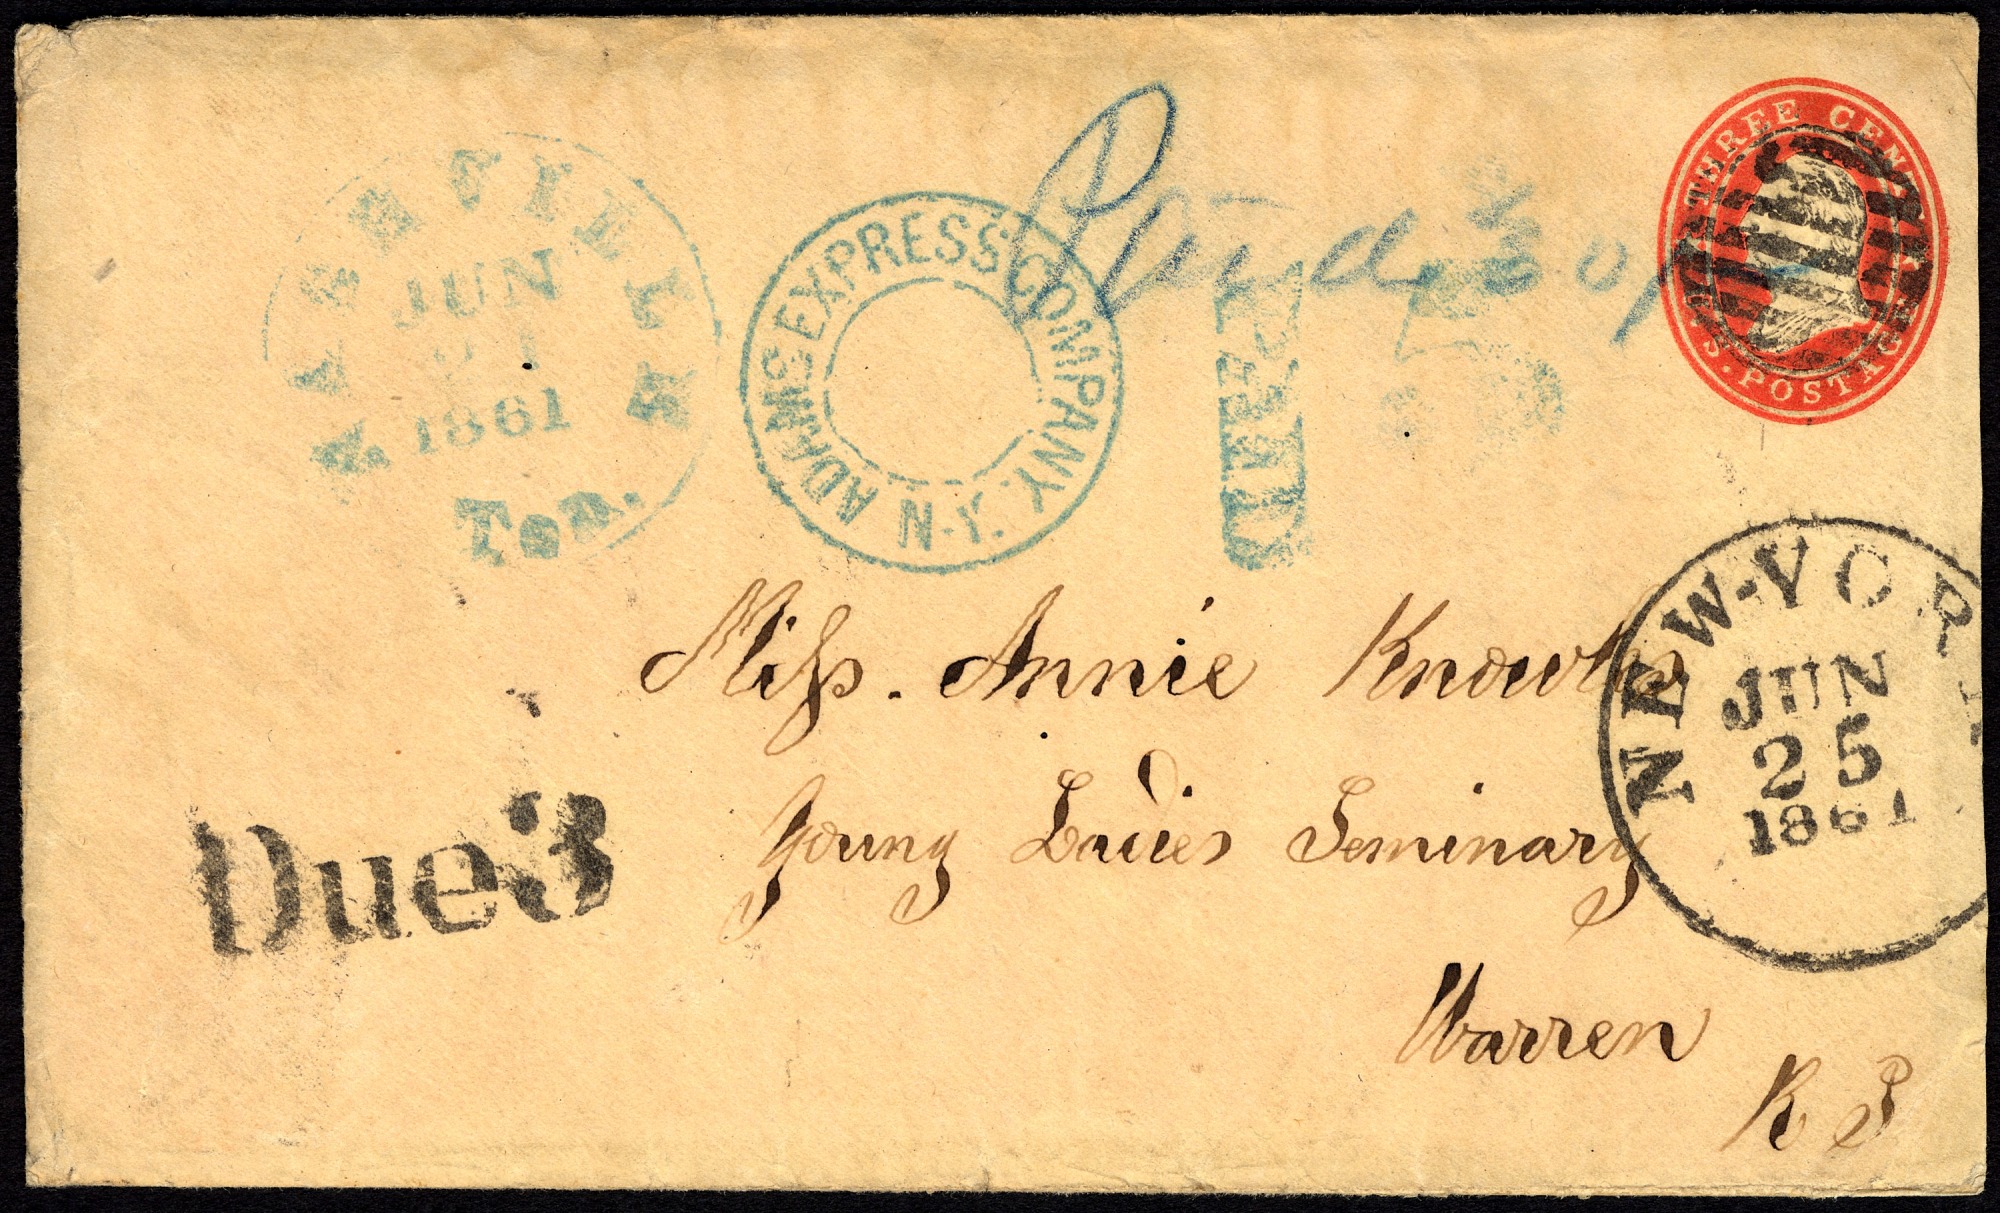 NASHVILLE
JUN
1861
Ten.
ADAMS EXPRESS COMPANY. N.Y.
Paid 30
PAID
5
THREE CENTS
U.S. POSTAGE
NEW-YORK
JUN
25
1861
Miss. Annie Knowles
Young Ladies Seminary
Warren
R I
Due 3